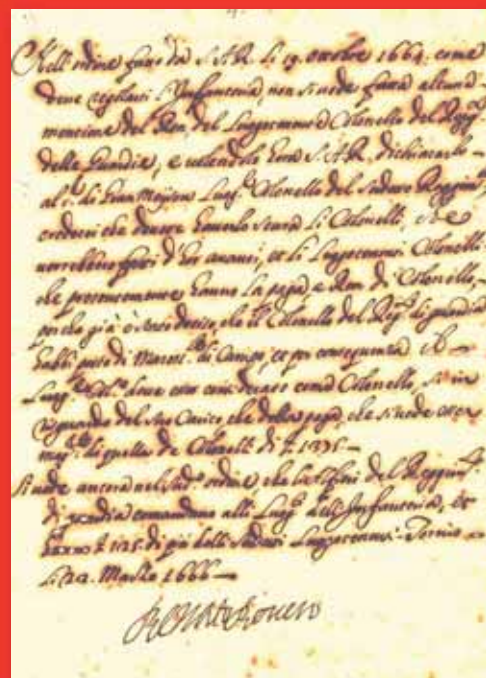 Nell'ordine fatto da S.A.R. li 19. ottobre 1664. come
deve regolarsi l'Infanteria, non si vede fatta alcuna
mentione del Rang del Luogotenente Colonello del Regg.
delle Guardie, e volendolo hora S.A.R. dichiarare
al S. di Gran Luog. Colonello del Sudetto Reggim.
che deve haverlo Li Colonelli,
d'hor avanti, et li Luogotenenti Colonelli
che hanno la paga, e Rang di Colonello,
perche già è stato deciso, che il Colonello del Regg. di guardia
habbi posto di Maresc. di Campo, et per consequenza il
Luog. Col. deve esser considerato come Colonello, si in
riguardo del suo Carico che della paga, che si vede esser
magg. di quella de Colonelli di 1335
Si vede ancora nel sud. ordine, che li Alfieri del Reggim.
di guardia comandano alli Luog. dell'Infanteria, et
hanno 125 di più delli Luogotenenti. Torino
Li 22. Marzo 1666